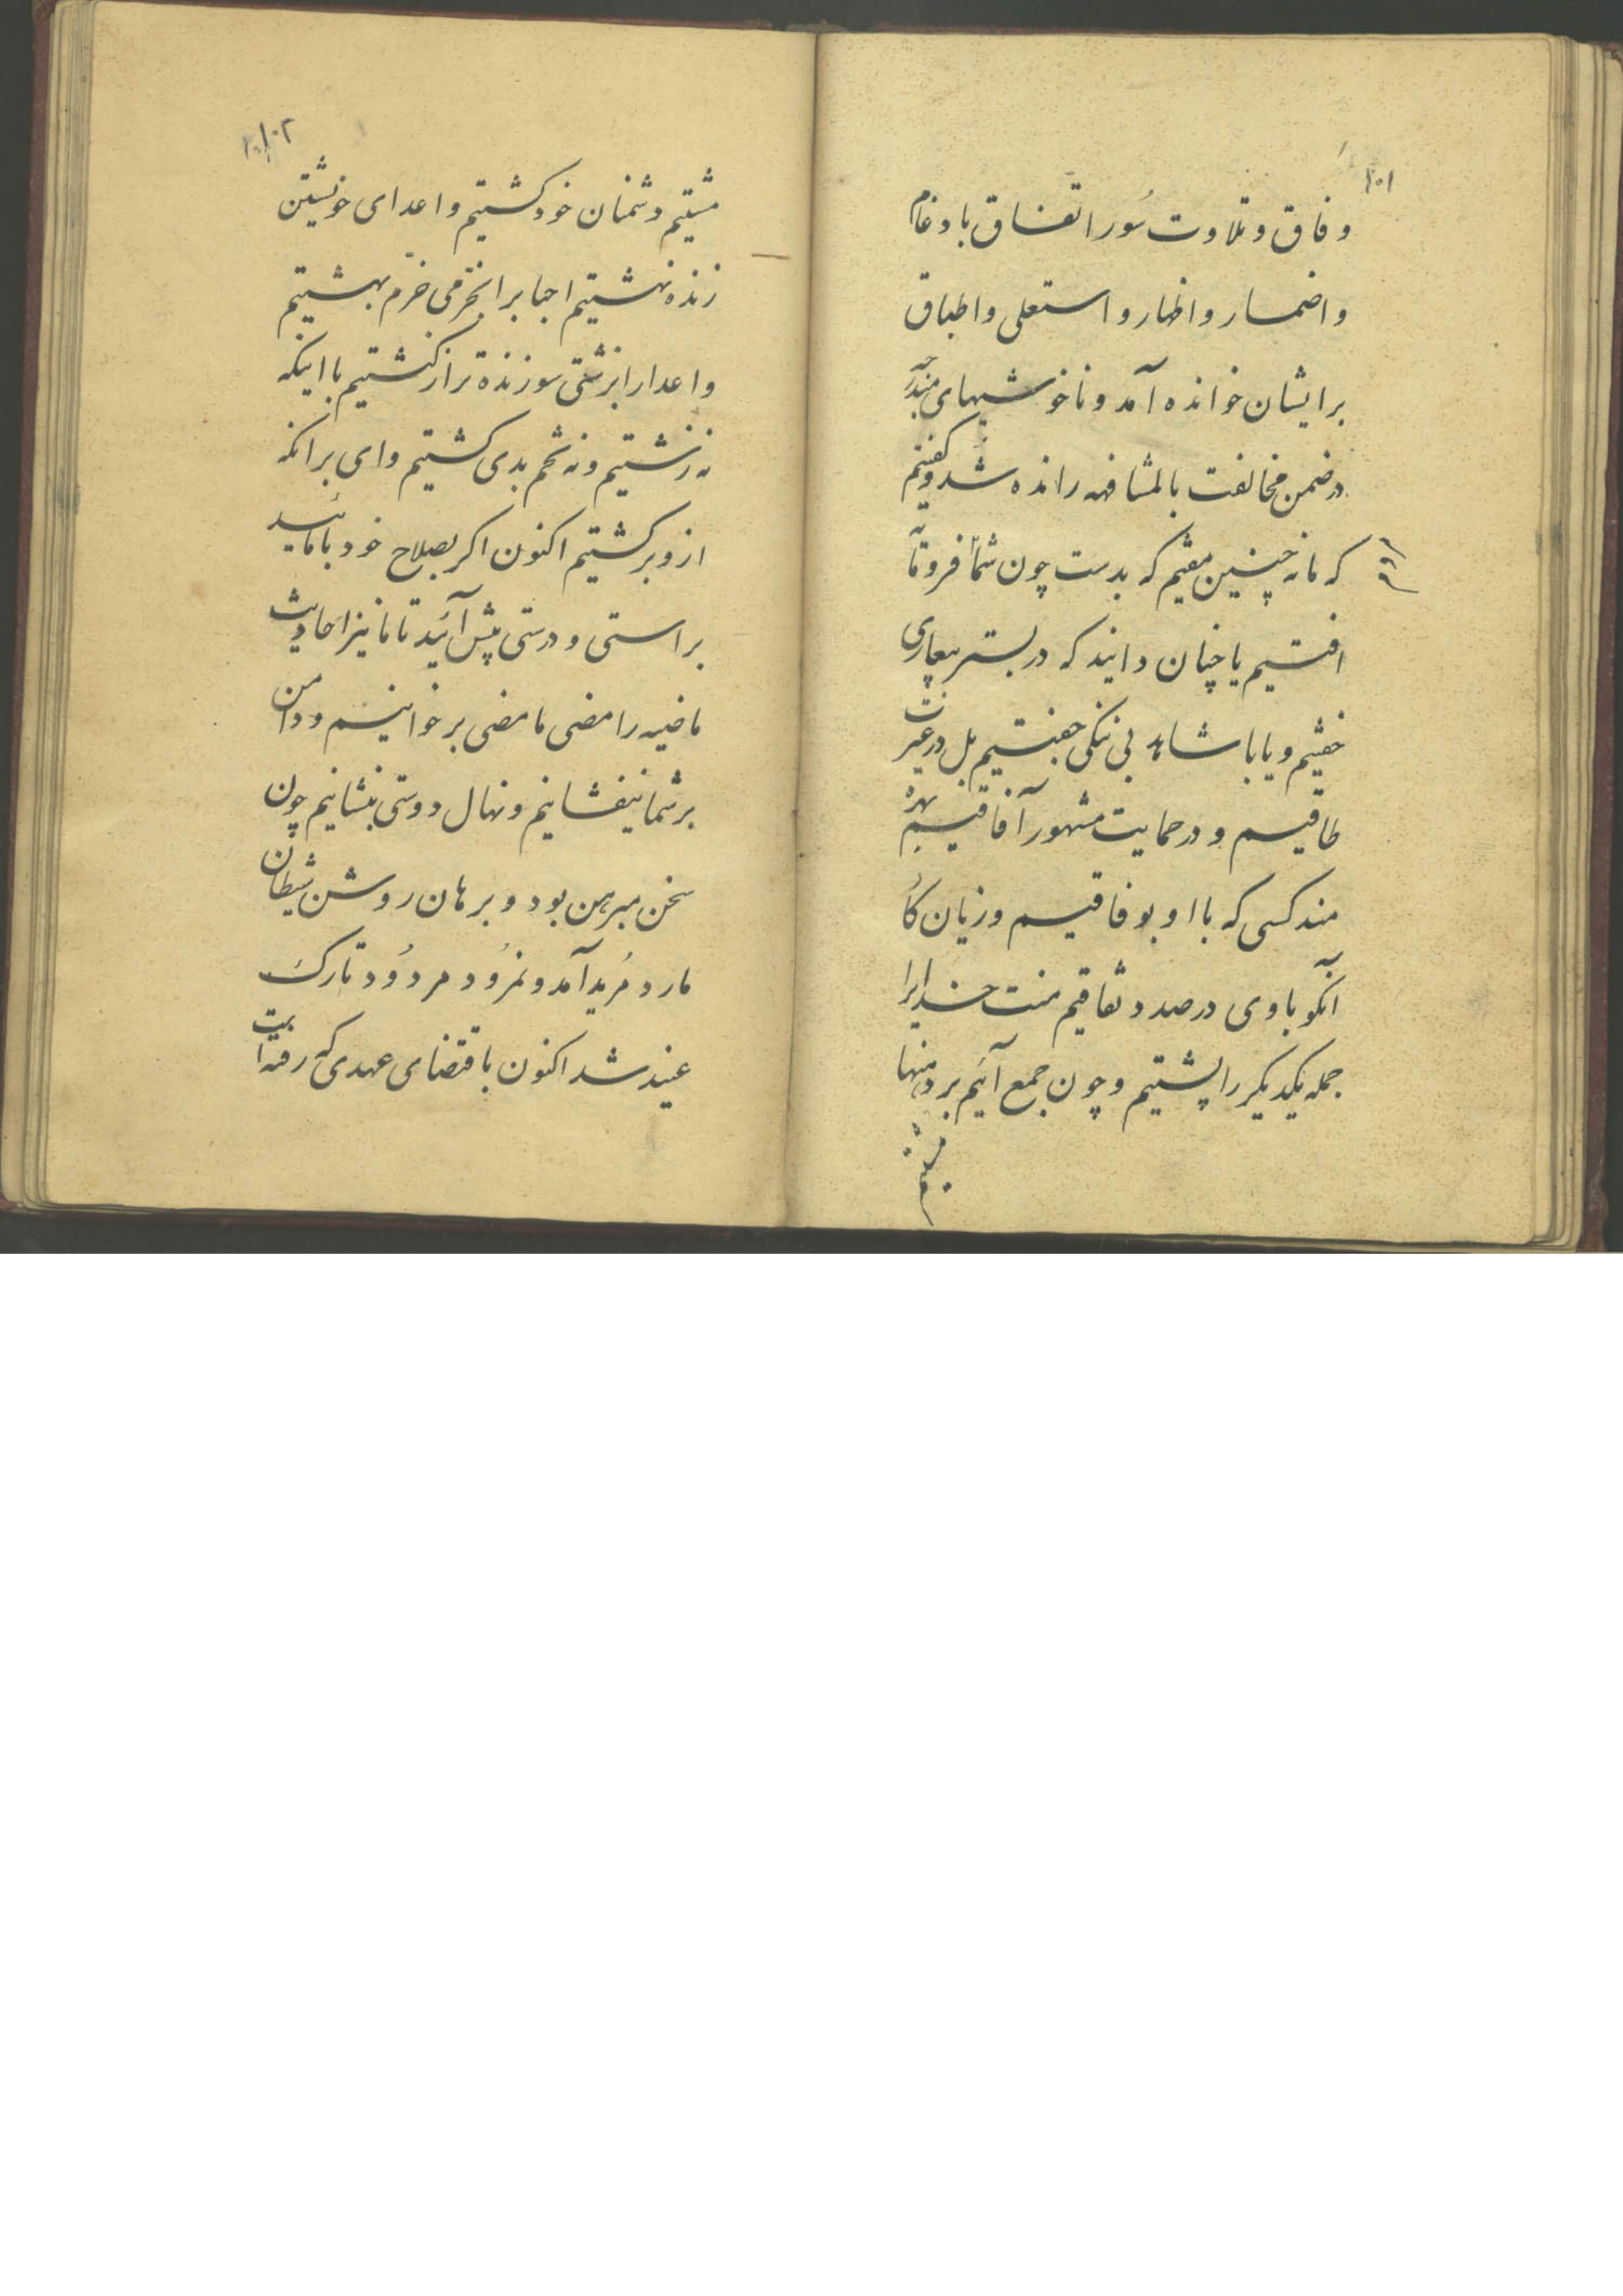 ۱۰۱
وفاق و تلاوت سُور اتفاق بادغام
و اضمار و اظهار و استعلی و اطباق
بر ایشان خوانده آمد و ناخوشیهای مندرجه
در ضمن مخالفت بالمشافهه رانده شد و گفتیم
که ما نه چنین مفتیم که بدست چون شما فروتنان
افتیم یا چنان دانید که در بستر بیعاری
خفتیم و یا با شاهد بی ننگی جفتیم بل در غیرت
طاقیم و در حمایت مشهور آفاقیم بهره
مند کسی که با او بوفاقیم و زیان کار
آنکو با وی در صدد نفاقیم منت خدایرا
جمله یکدیگر را پشتیم و چون جمع آئیم بر دهنها
مشتیم
۱۰۲
مشتیم دشمنان خود کشتیم و اعدای خویشتن
زنده نهشتیم احبا را بخرمی خرّم بهشتیم
و اعدا را بزشتی سوزنده تر از کنشتیم با اینکه
نه زشتیم و نه تخم بدی کشتیم وای بر انکه
ازو برگشتیم اکنون اکر بصلاح خود با مائید
براستی و درستی پیش آئید تا ما نیز احادیث
ماضیه را مضی ما مضی برخوانیم و دامن
بر شما نیفشانیم و نهال دوستی بنشانیم چون
سخن مبرهن بود و برهان روشن شیطان
مارد مُرید آمد و نمرُود مردُود تارک
عنید شد اکنون باقتضای عهدی که رفته است